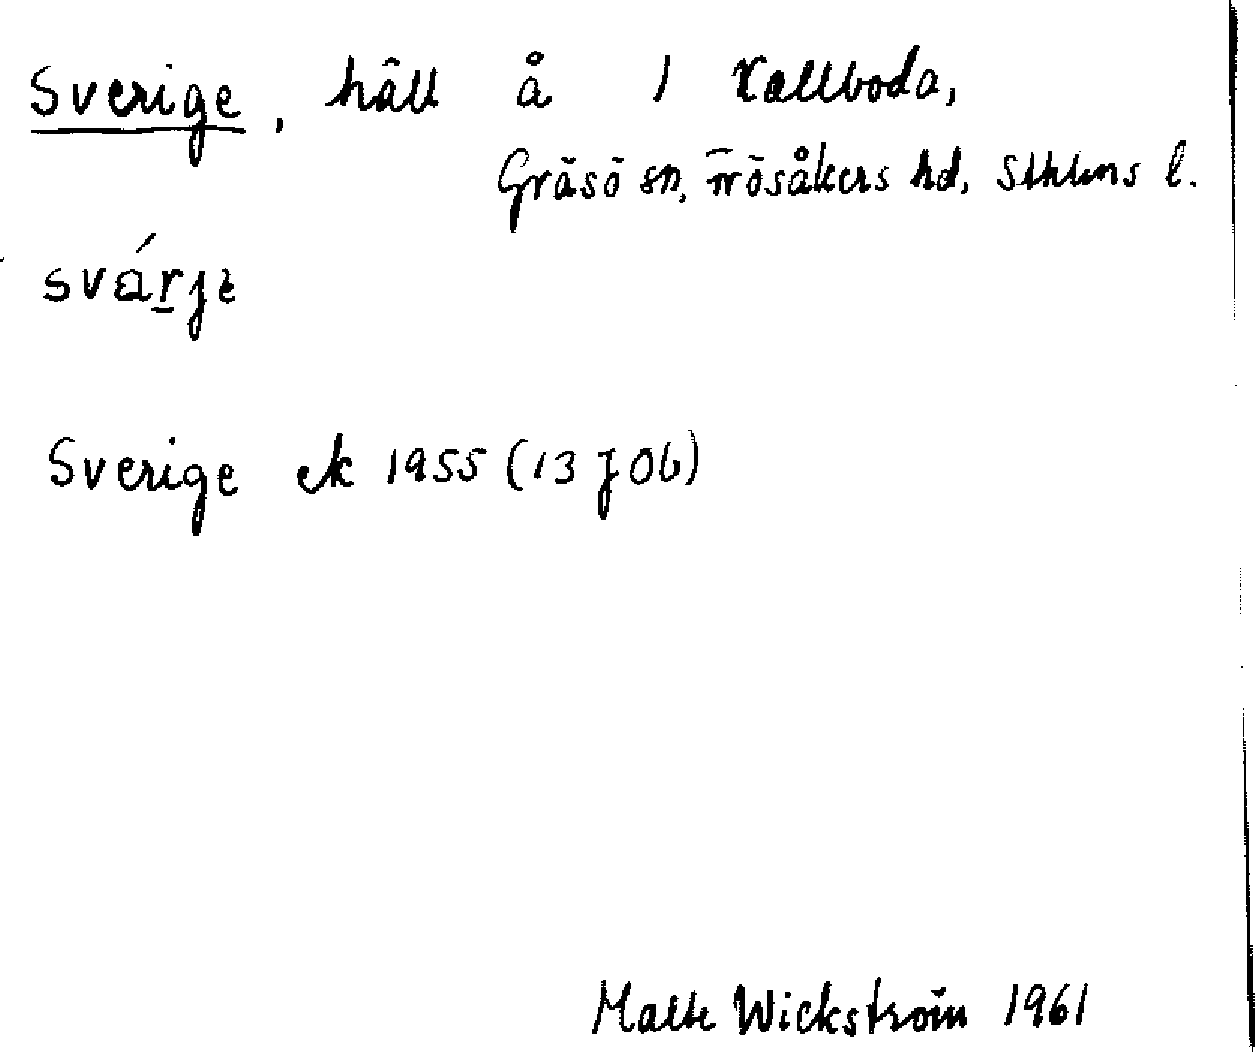 Sverige, häll å 1 Kallboda,
Gräsö sn, Frösåkers hd, Sthlms l.
svárje
Sverige ek 1955 (13 J 0b)
Malte Wickström 1961